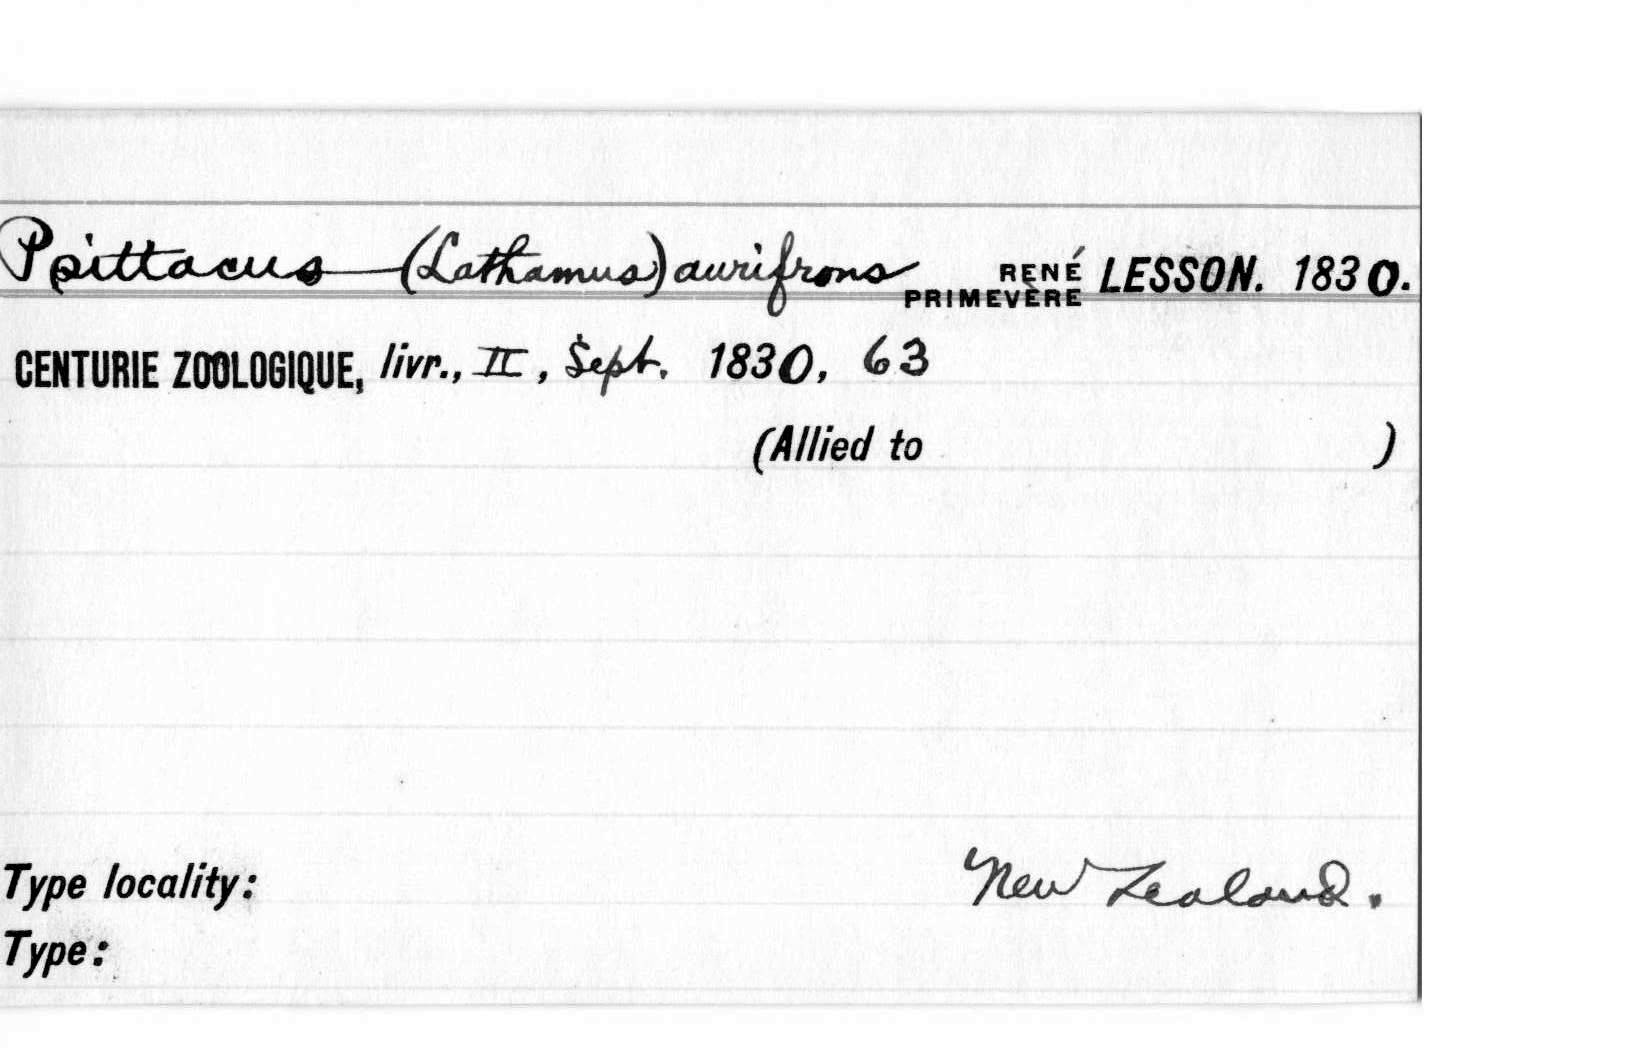 Psittacus (Lathamus) aurifrons RENÉ PRIMEVÈRE LESSON. 1830.
CENTURIE ZOOLOGIQUE, livr., II, Sept. 1830, 63
(Allied to )
Type locality: New Zealand.
Type: